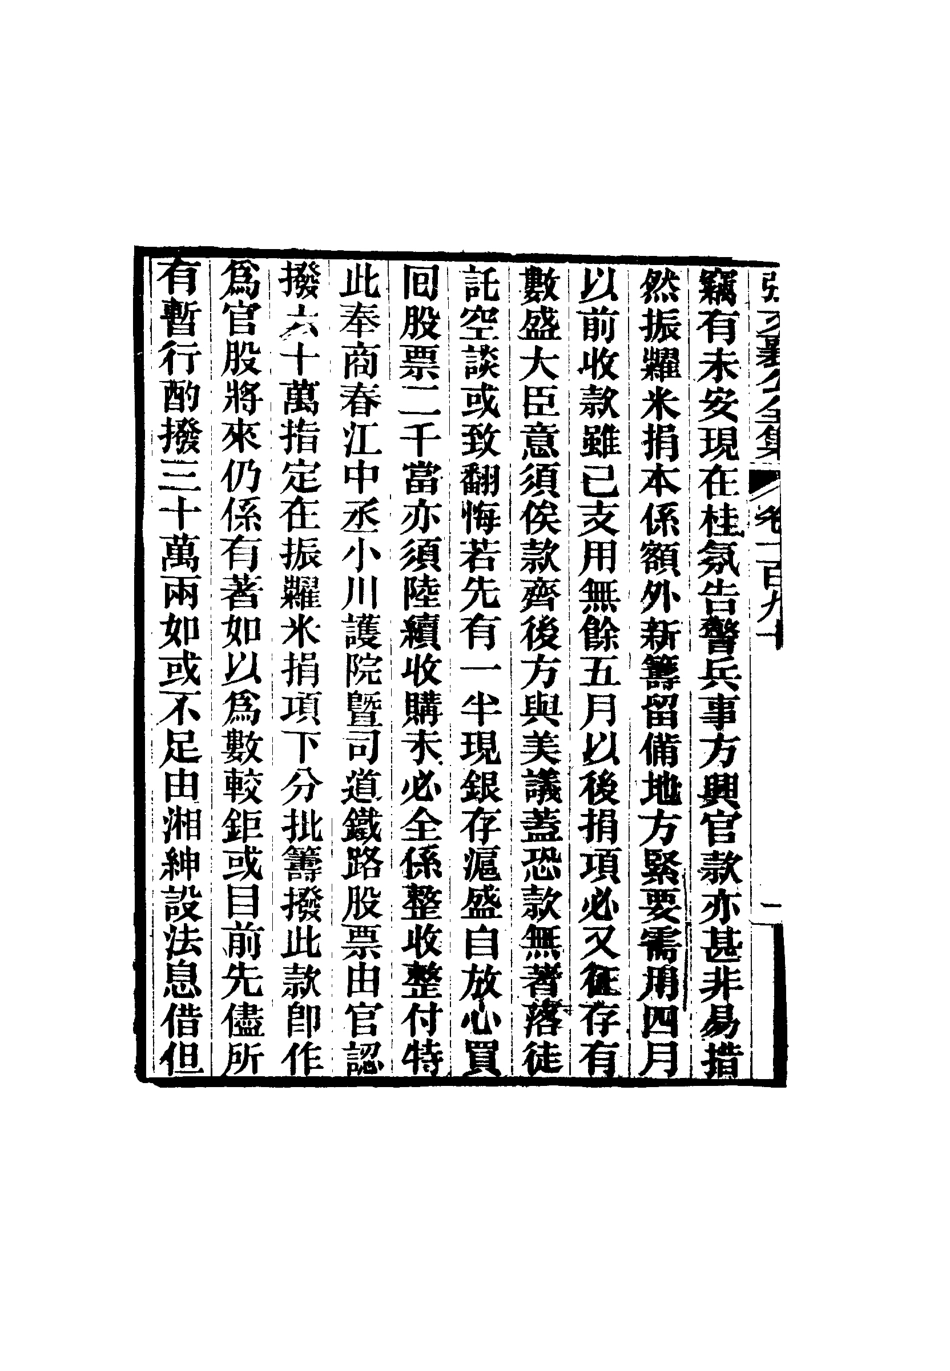 張文襄公全集 卷一百九十 一
竊有未安現在桂氛告警兵事方興官款亦甚非易措
然振糶米捐本係額外新籌留備地方緊要需用四月
以前收款雖已支用無餘五月以後捐項必又征存有
數盛大臣意須俟款齊後方與美議蓋恐款無著落徒
託空談或致翻悔若先有一半現銀存滬盛自放心買
囘股票二千當亦須陸續收購未必全係整收整付特
此奉商春江中丞小川護院暨司道鐵路股票由官認
撥六十萬指定在振糶米捐項下分批籌撥此款卽作
爲官股將來仍係有著如以爲數較鉅或目前先儘所
有暫行酌撥三十萬兩如或不足由湘紳設法息借但